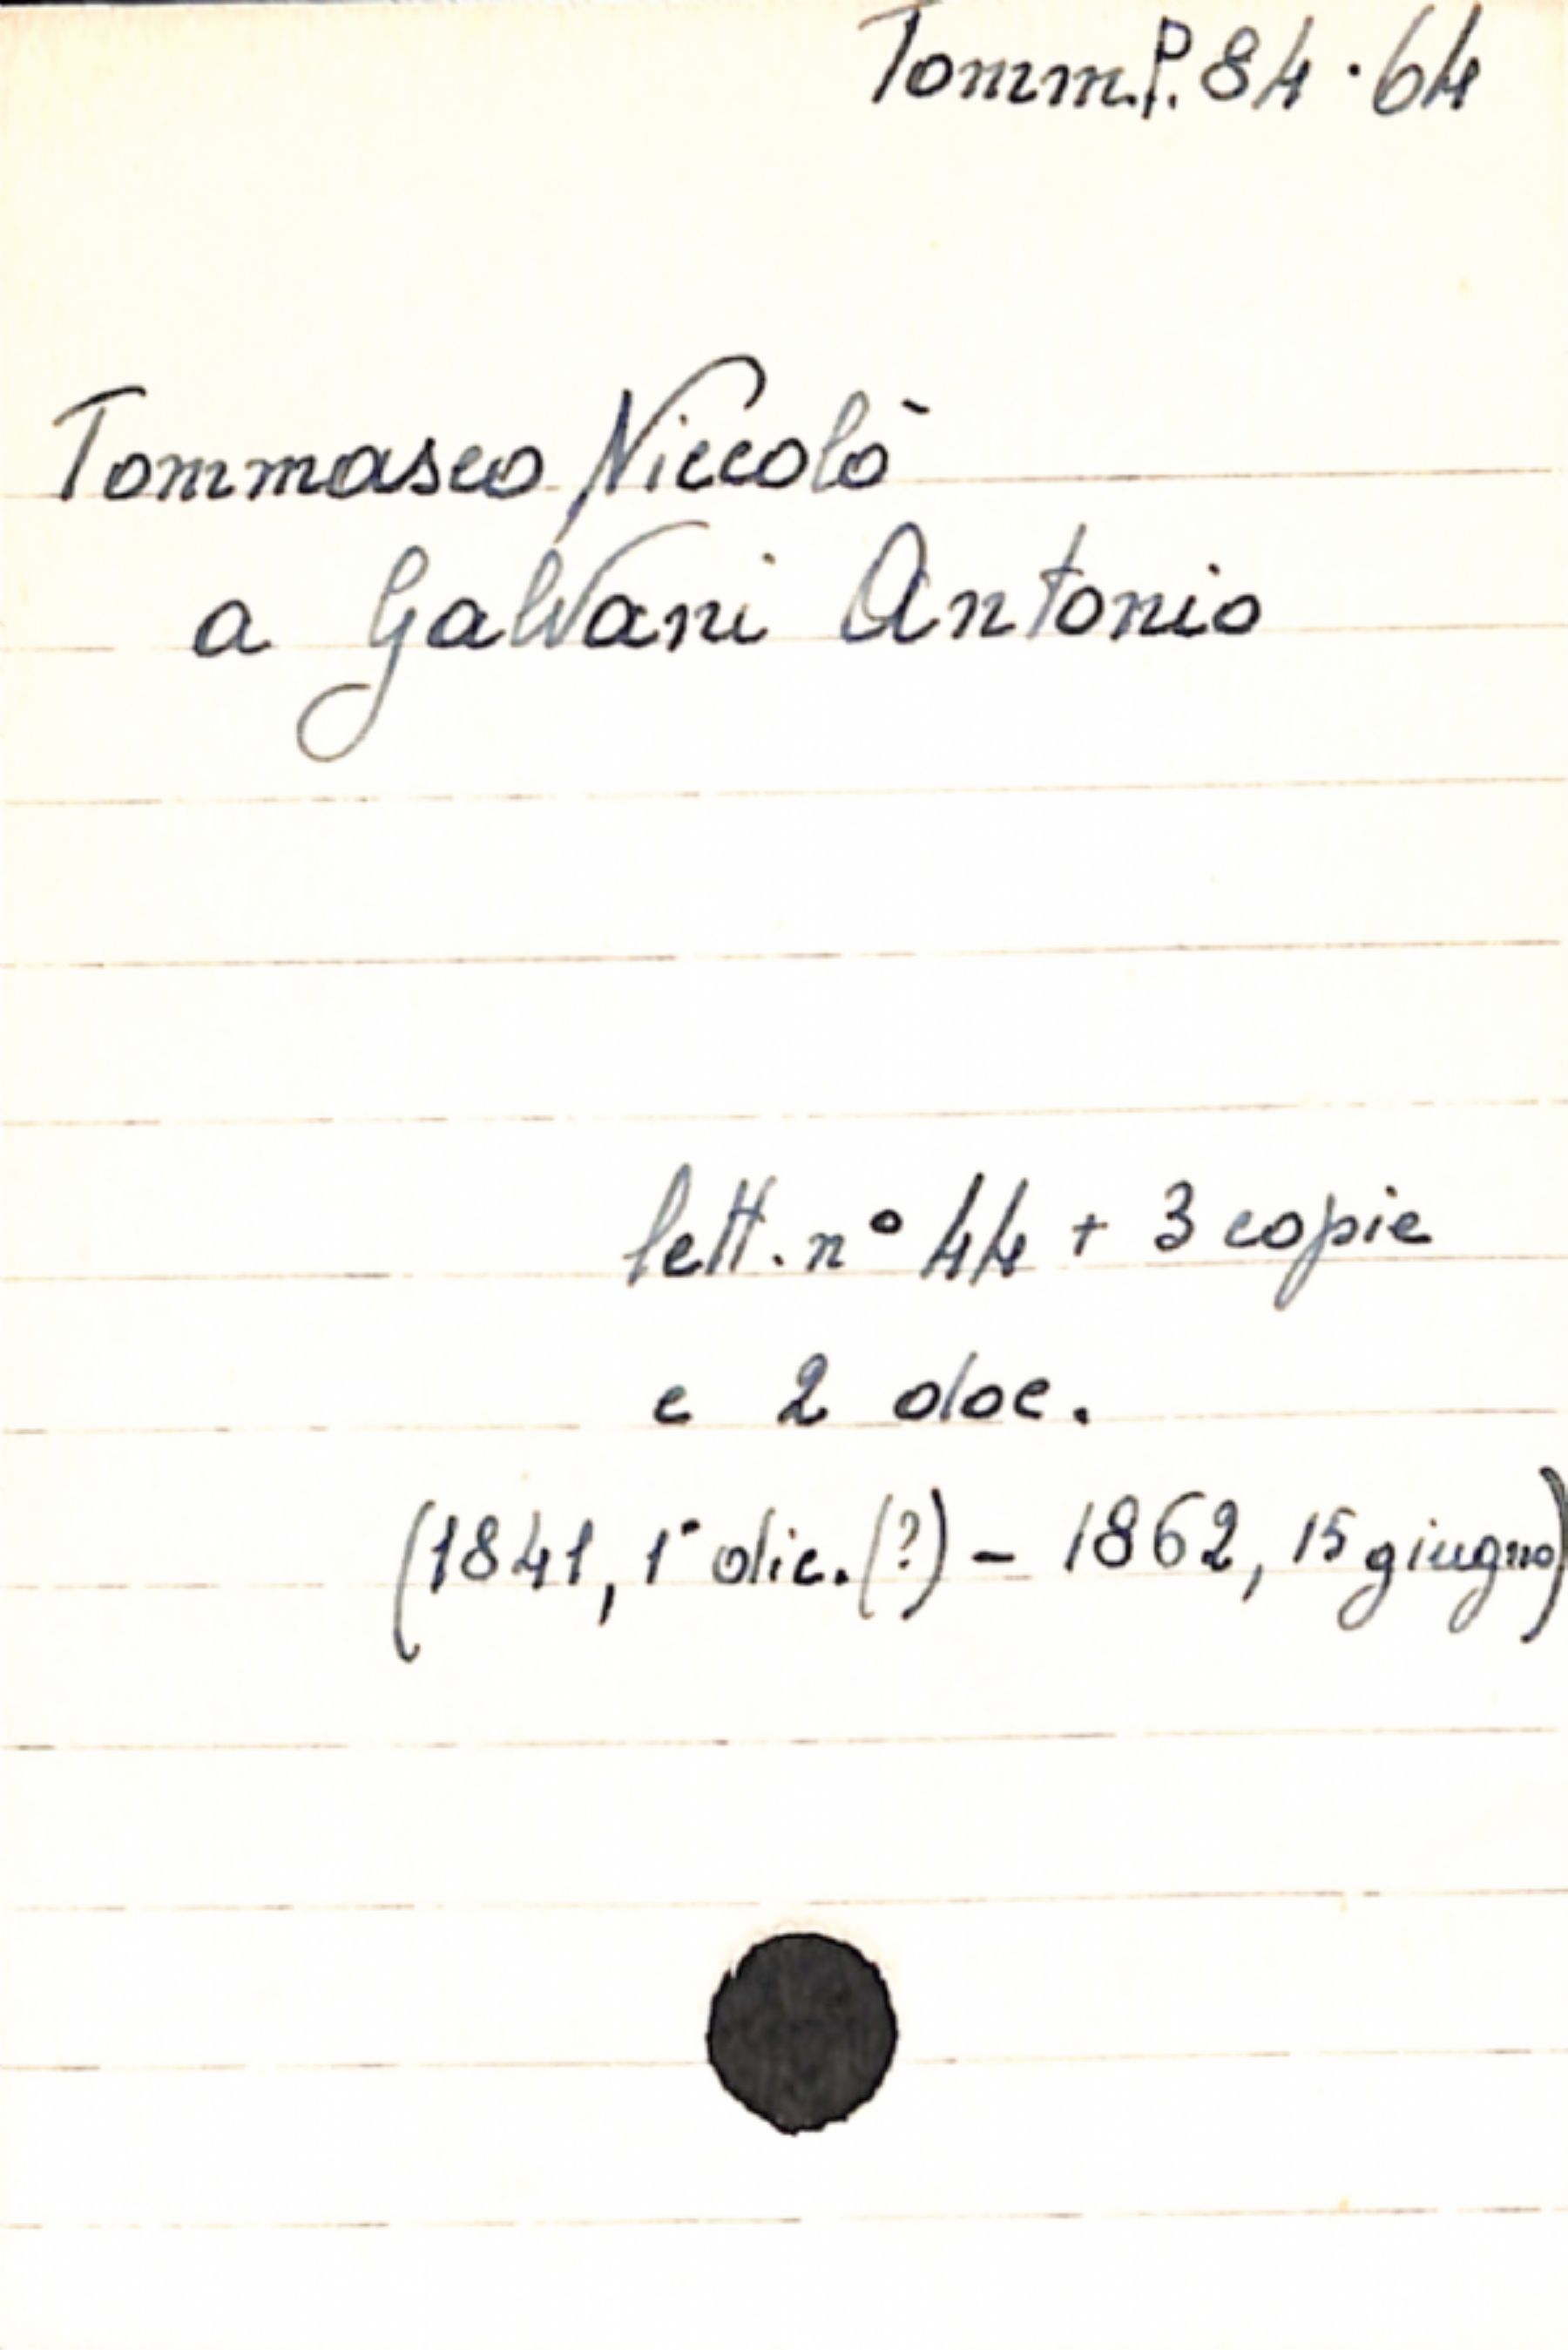 Tomm.P. 84.64
Tommaseo Niccolò
a Galvani Antonio
lett. n° 44 + 3 copie
e 2 doc.
(1841, 1° dic. (?) - 1862, 15 giugno)